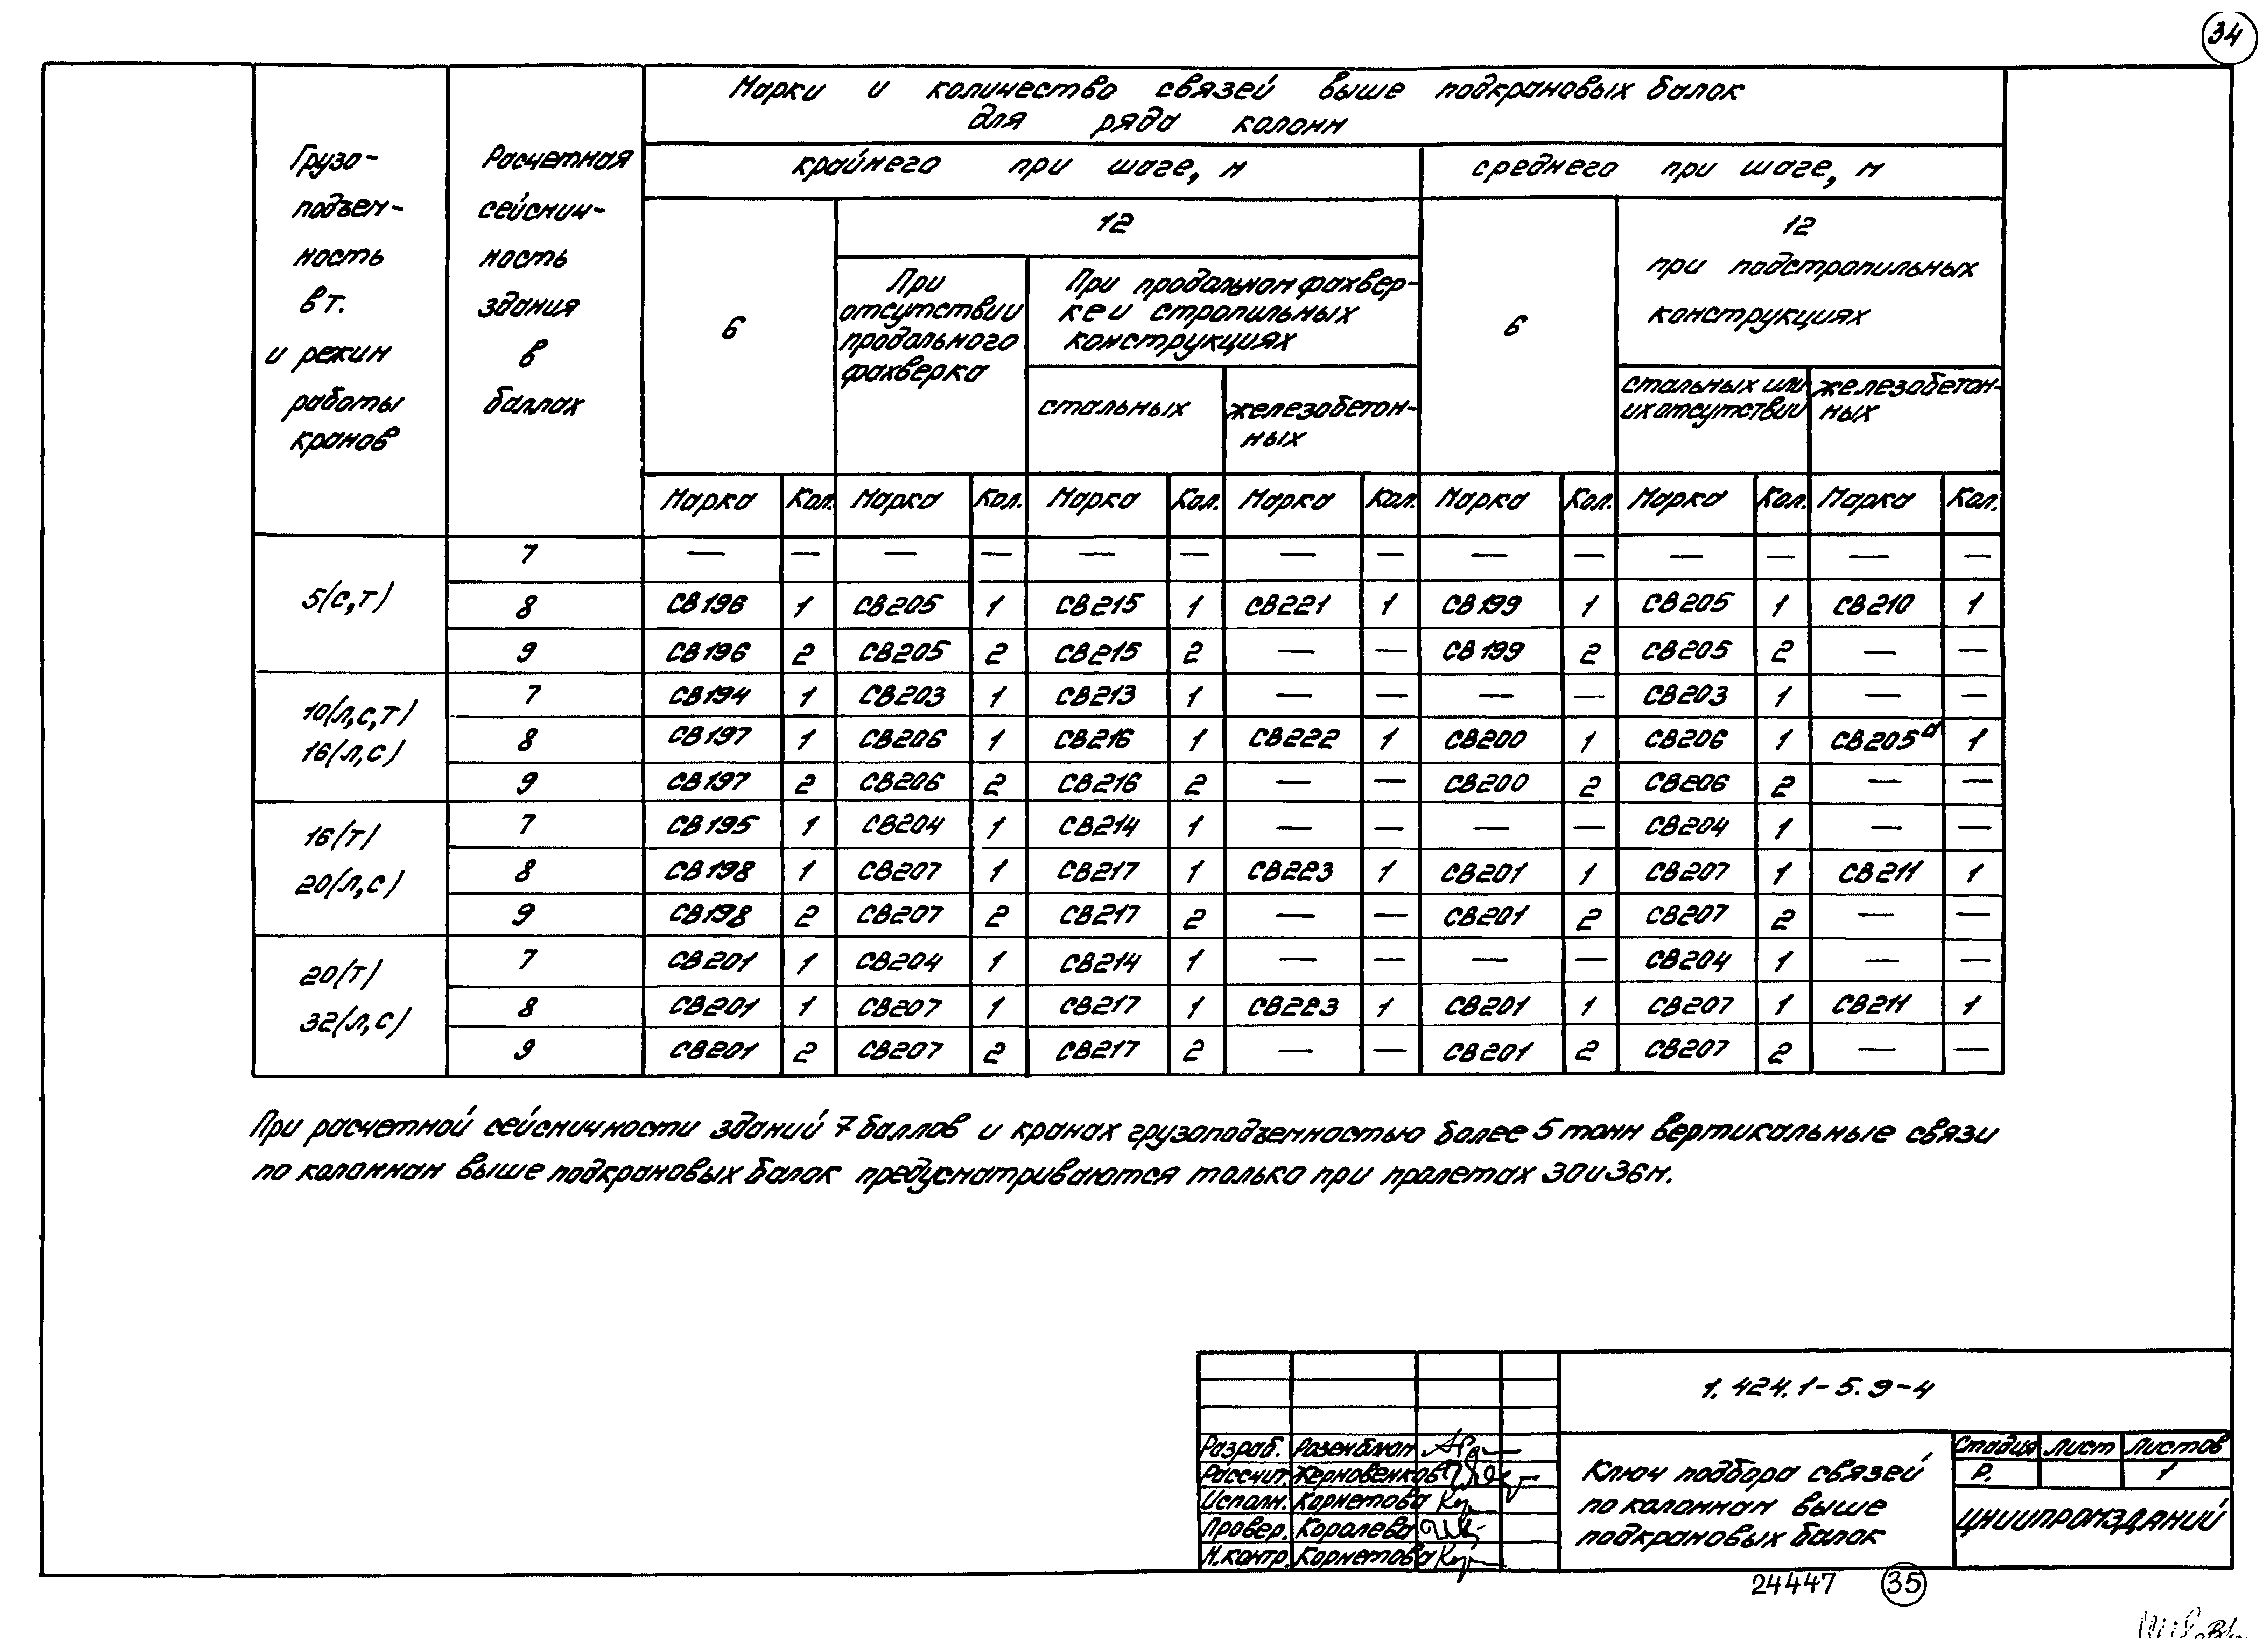 34
Марки и количество связей выше подкрановых балок
для ряда колонн
Грузо-
подъем-
ность
в т.
и режим
работы
кранов
Расчетная
сейсмич-
ность
здания
в
баллах
крайнего при шаге, м
среднего при шаге, м
6
12
При
отсутствии
продольного
фахверка
При продольном фахвер-
ке и стропильных
конструкциях
стальных
железобетон-
ных
6
12
при подстропильных
конструкциях
стальных или
их отсутствии
железобетон-
ных
Марка Кол. Марка Кол. Марка Кол. Марка Кол. Марка Кол. Марка Кол. Марка Кол.
5(с,т)
7 — — — — — — — — — — — — — —
8 СВ196 1 СВ205 1 СВ215 1 СВ221 1 СВ199 1 СВ205 1 СВ210 1
9 СВ196 2 СВ205 2 СВ215 2 — — СВ199 2 СВ205 2 — —
10(л,с,т)
16(л,с)
7 СВ194 1 СВ203 1 СВ213 1 — — — — СВ203 1 — —
8 СВ197 1 СВ206 1 СВ216 1 СВ222 1 СВ200 1 СВ206 1 СВ205а 1
9 СВ197 2 СВ206 2 СВ216 2 — — СВ200 2 СВ206 2 — —
16(т)
20(л,с)
7 СВ195 1 СВ204 1 СВ214 1 — — — — СВ204 1 — —
8 СВ198 1 СВ207 1 СВ217 1 СВ223 1 СВ201 1 СВ207 1 СВ211 1
9 СВ198 2 СВ207 2 СВ217 2 — — СВ201 2 СВ207 2 — —
20(т)
32(л,с)
7 СВ201 1 СВ204 1 СВ214 1 — — — — СВ204 1 — —
8 СВ201 1 СВ207 1 СВ217 1 СВ223 1 СВ201 1 СВ207 1 СВ211 1
9 СВ201 2 СВ207 2 СВ217 2 — — СВ201 2 СВ207 2 — —
При расчетной сейсмичности зданий 7 баллов и кранах грузоподъемностью более 5 тонн вертикальные связи
по колоннам выше подкрановых балок предусматриваются только при пролетах 30 и 36 м.
1.424.1-5.9-4
Разраб. Розенблюм
Рассчит. Жерновенков
Исполн. Корнетова
Провер. Королева
Н.контр. Корнетова
Ключ подбора связей
по колоннам выше
подкрановых балок
Стадия Лист Листов
Р. 1
ЦНИИПРОМЗДАНИЙ
24447 35